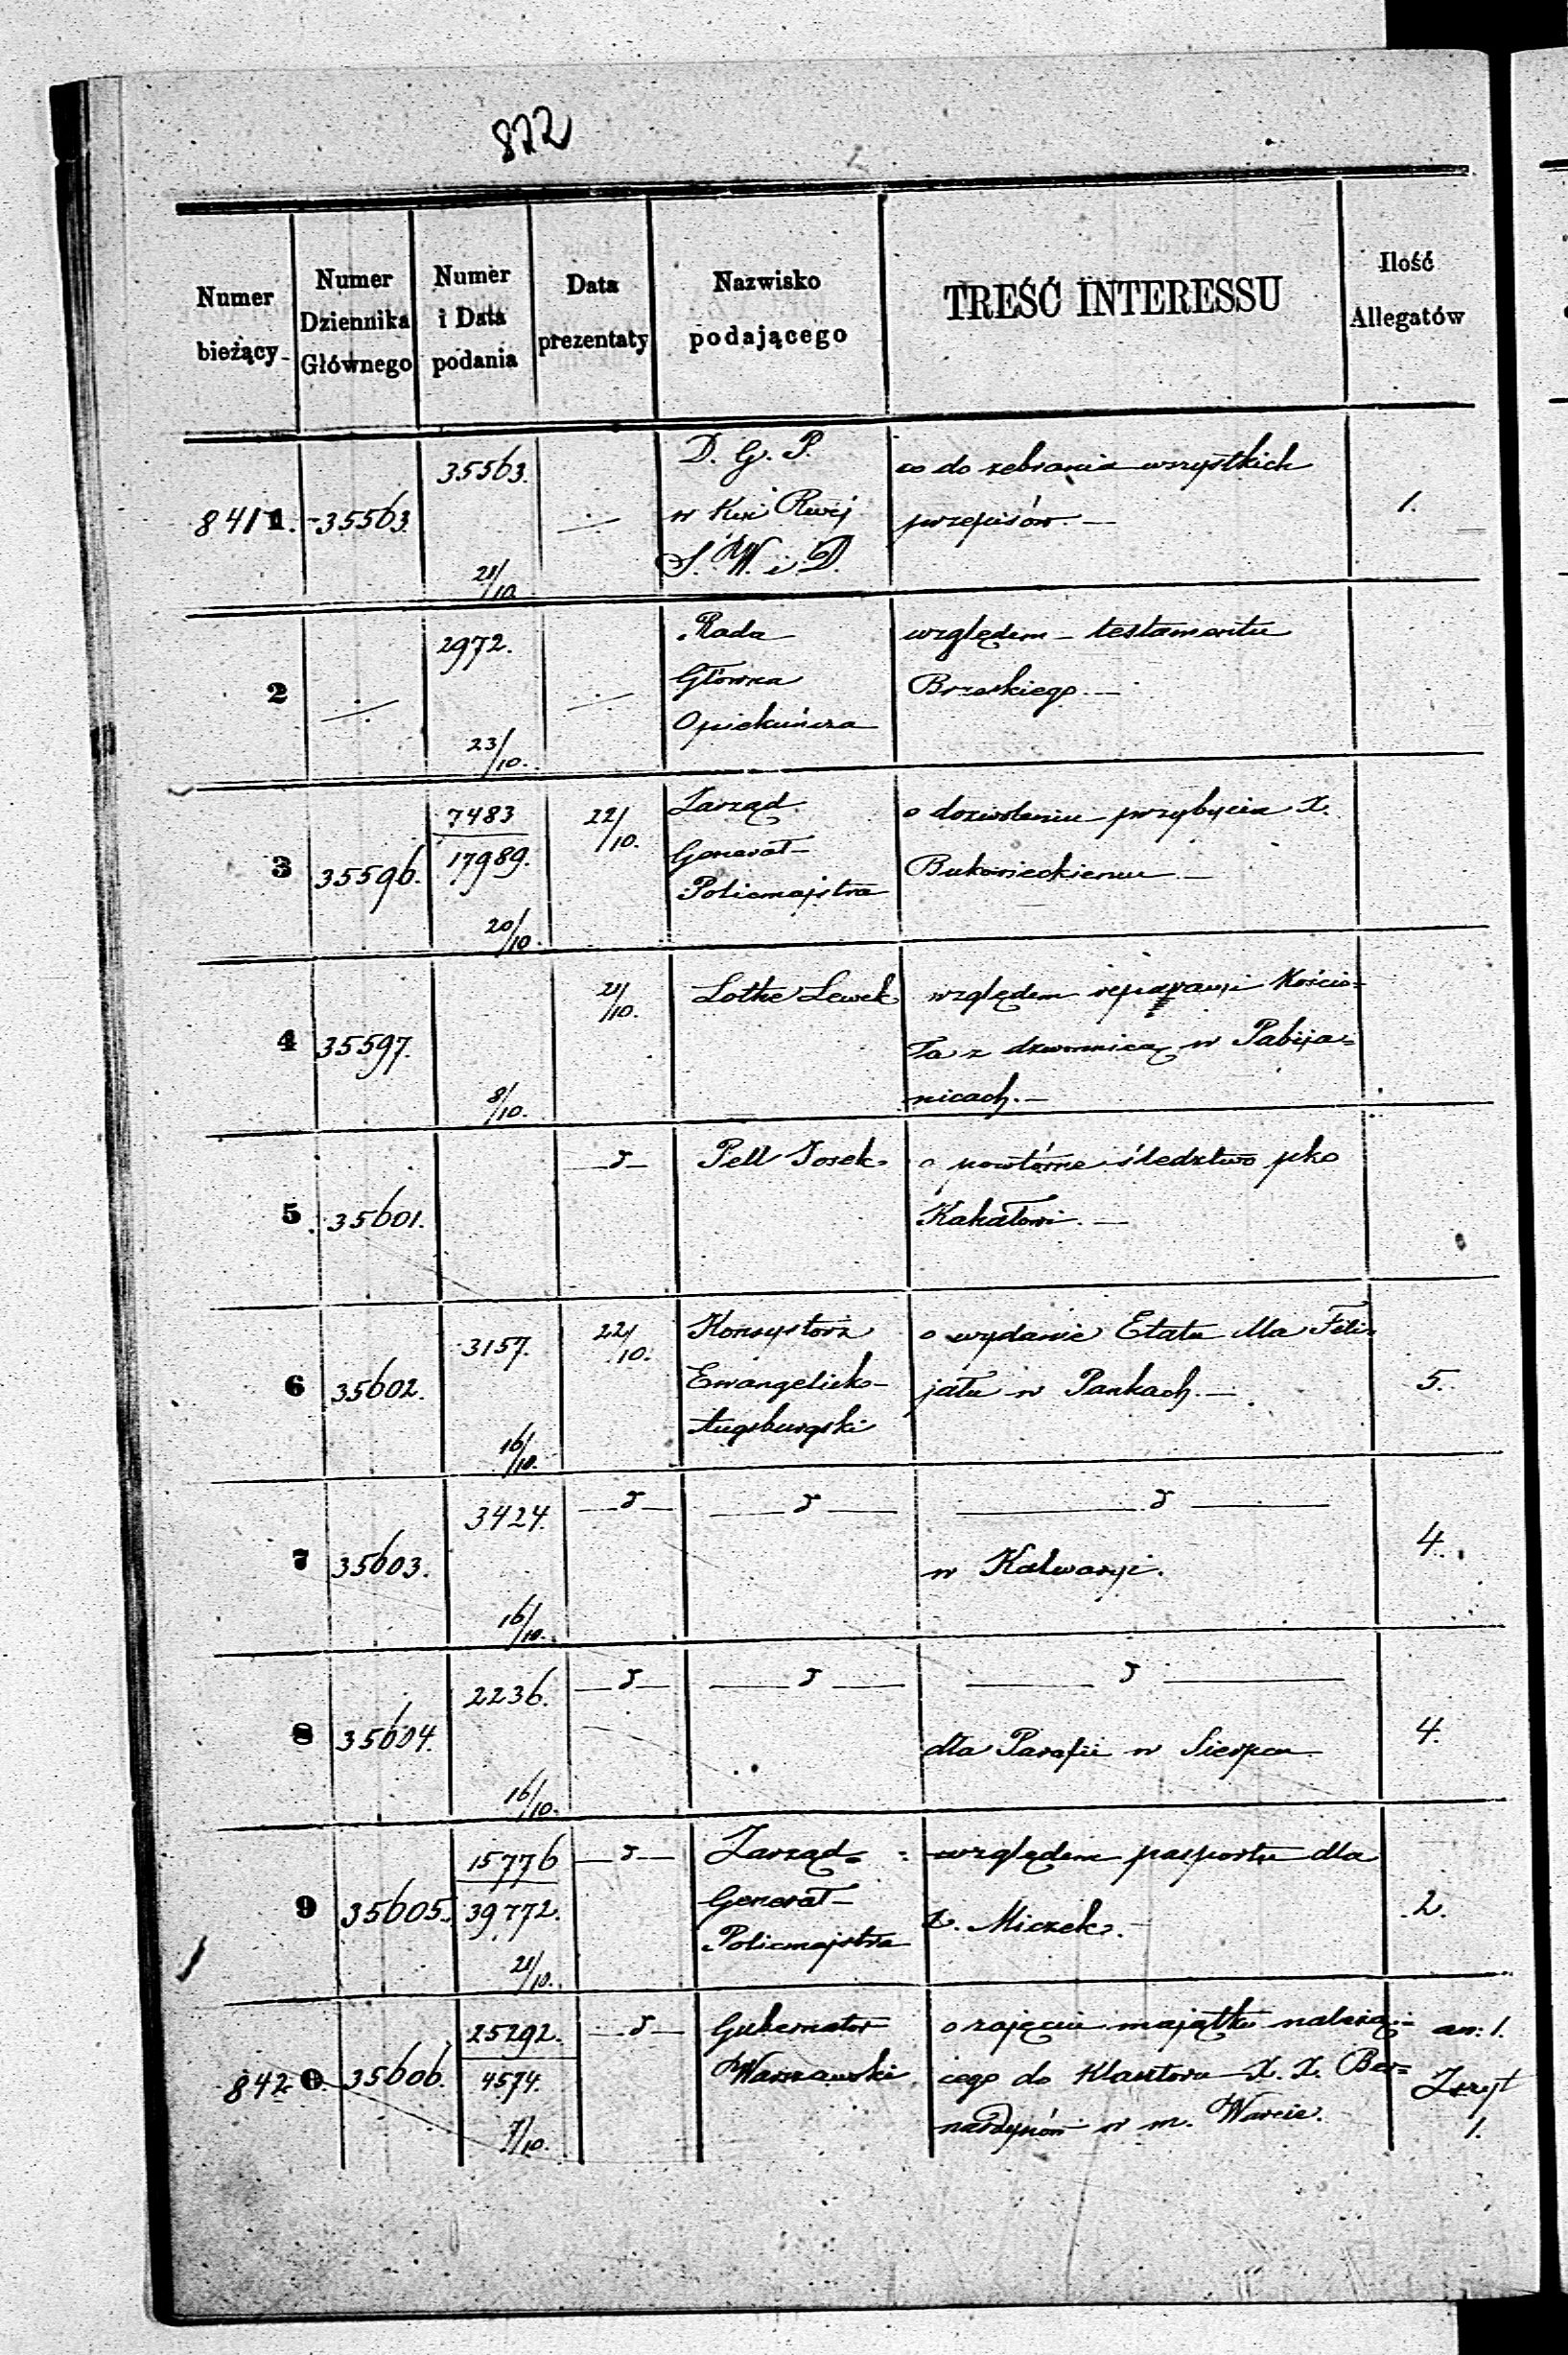 822
Numer bieżący
Numer Dziennika Głównego
Numer i Data podania
Data prezentaty
Nazwisko podającego
TREŚĆ INTERESSU
Ilość Allegatów
8411. 35563. 35563. 21/10. D. G. P. co do zebrania wszystkich 1.
w Kxi Rwij przepisów. —
S. W. i. D.
2 2972. 23/10. Rada względem testamentu
Główna Brzeskiego. —
Opiekuńcza
3 35596. 7483 22/10. Zarząd o dozwoleniu przybycia X.
17989. Generał- —
20/10. Policmajstra
4 35597. 21/10. Lotke Lewek względem reparacji Kościo=
ła z dzwonnicą w Pabija=
8/10. nicach. —
5 35601. — d — Pell Josek o powtórne śledztwo pko
—
6 35602. 3157. 22/10. Konsystorz o wydanie Etatu dla Fili=
Ewangelicko- jału w Pankach. — 5.
16/10. Augsburgski
7 35603. 3424. — d — — d — — d — 4.
w Kalwaryi.
16/10.
8 35604. 2236. — d — — d — — d — 4.
dla Parafii w Sierpcu.
16/10.
9 35605. 15776 — d — Zarząd względem pasportu dla
39772. Generał- X. Miczek. — 2.
21/10. Policmajstra
8420. 35606. 25292. — d — Gubernator o zajęciu majątku należą= an: 1.
4574. Warszawski cego do Klasztoru X. X. Ber= Zszyt
7/10. nardynów w m. Warcie. 1.